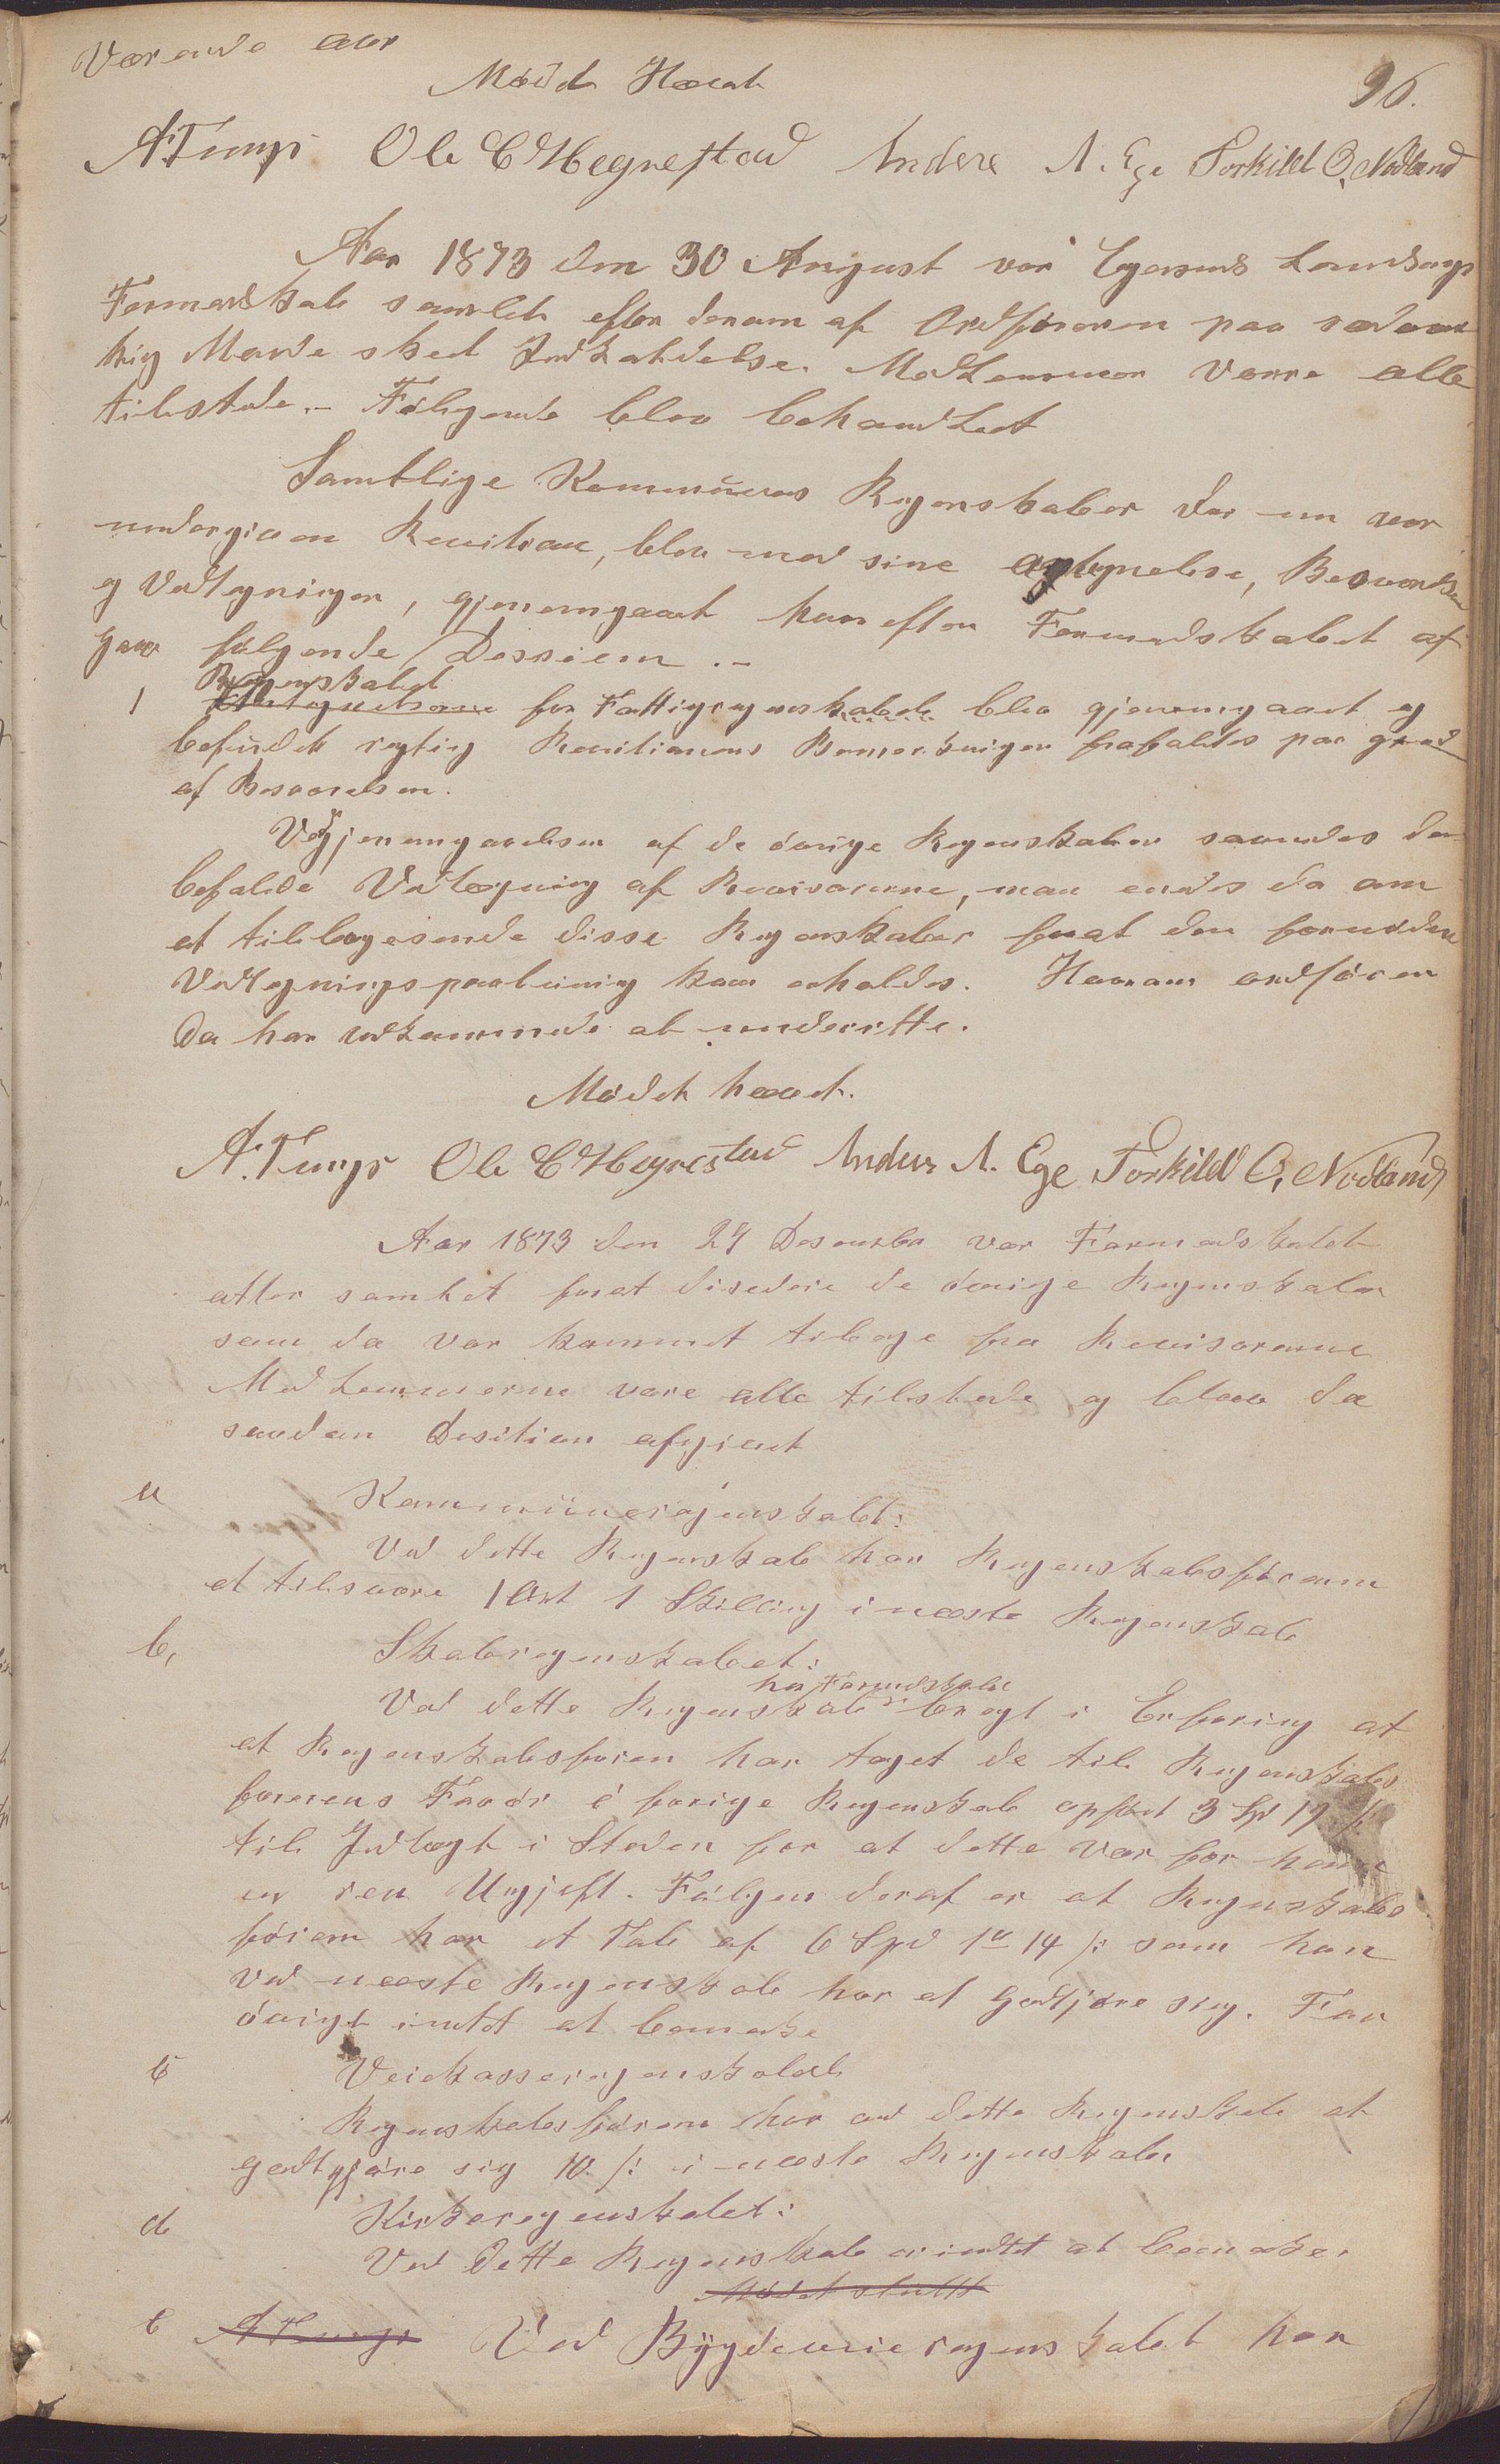 Værende aar
Mødet Hævet
96.
A. Tengs Ole C Hegrestad Anders A. Ege Torkild O. Nodland
Aar 1873 den 30 August var Egersunds Landsogns
Formandskab samlet efter derom af Ordføreren paa sædvan
lig Maade skeet Indkaldelse. Medlemmer vare alle
tilstede. – Følgende blev behandlet
Samtlige Kommunens Regnskaber der nu var
undergiven Revision, blev med sine Besvarelser
og Vedtegninger, gjenemgaaet hvorefter Formandskabet af
gav følgende Dession . –
1 Regnskabet for Fattigregnskabet blev gjenemgaaet og
befundet regtig Revisionens Bemerkninger frafaldes paa grund
af Besvarelsen.
Ved Gjenemgaaelsen af de øvrige Regnskaber savnedes den
befalede Vedtegning af Revisorerne, man enedes da om
at tilbagesende disse Regnskaber forat den fornødne
Vedtegningspaategning kan erholdes. Hvorom ordføreren
da har vedkommende at underrette.
Mødet hævet.
A. Tengs Ole C Hegrestad Anders A. Ege Torkild O. Nodland
Aar 1873 den 27 Desember var Formandskabet
atter samlet forat disedere de øvrige Regnskaber
som da var kommet tilbage fra Revisorerne
Medlemmerne vare alle tilstede og blev da
saadan Desition afgivet
a Kommuneregnskabet:
Ved dette Regnskab har Regnskabsføreren
at tilsvare 1 Ort 1 Skilling i næste Regnskab
b, Skoleregnskabet:
har Formandskabet
Ved dette Regnskab bragt i Erfaring at
at Regnskabsføren har taget de til Regnskabs
førerens Favør i forrige Regnskab opført 3 Spd 17 ß
til Indtægt i Steden for at dette var for ham
en ren Udgjeft. Følgen deraf er at Regnskabs
føreren har et Tab af 6 Spd 1 14 ß som han
ved neeste Regnskab har at godtjøre sig. For
øvrigt intet at bemerke
c Veiekasseregnskabet
Regnskabsføreren har ved dette Regnskab at
godtgjøre sig 10 ß i neste Regnskab
d Kirkeregnskabet:
Ved dette Regnskab er intet at bemerke.
Mødet sluttet
e A Tengs Ved Bygdemeieregnskabet har